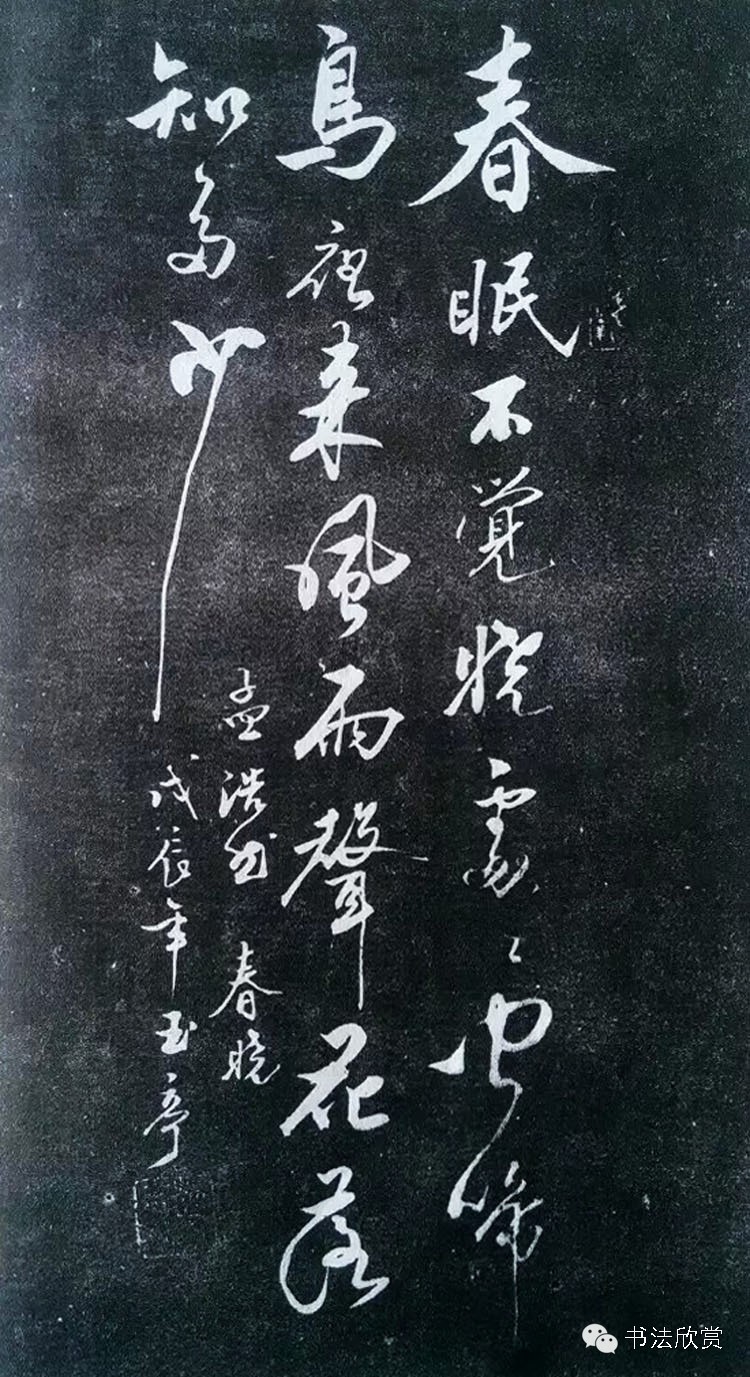 春眠不覺曉處々聞啼
鳥夜来風雨聲花落
知多少
孟浩然 春曉
戊辰年玉亭
书法欣赏